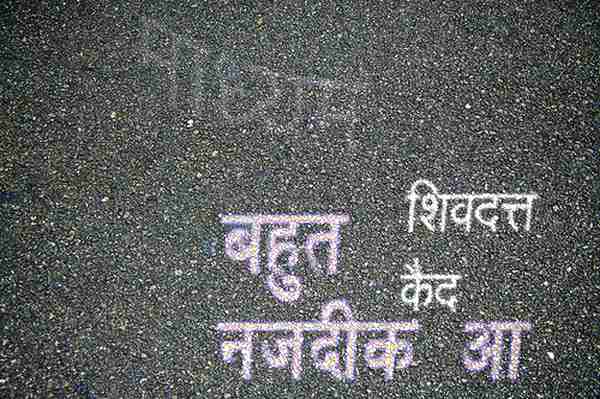 शिवदत्त
बहुत
कैद
नजदीक आ